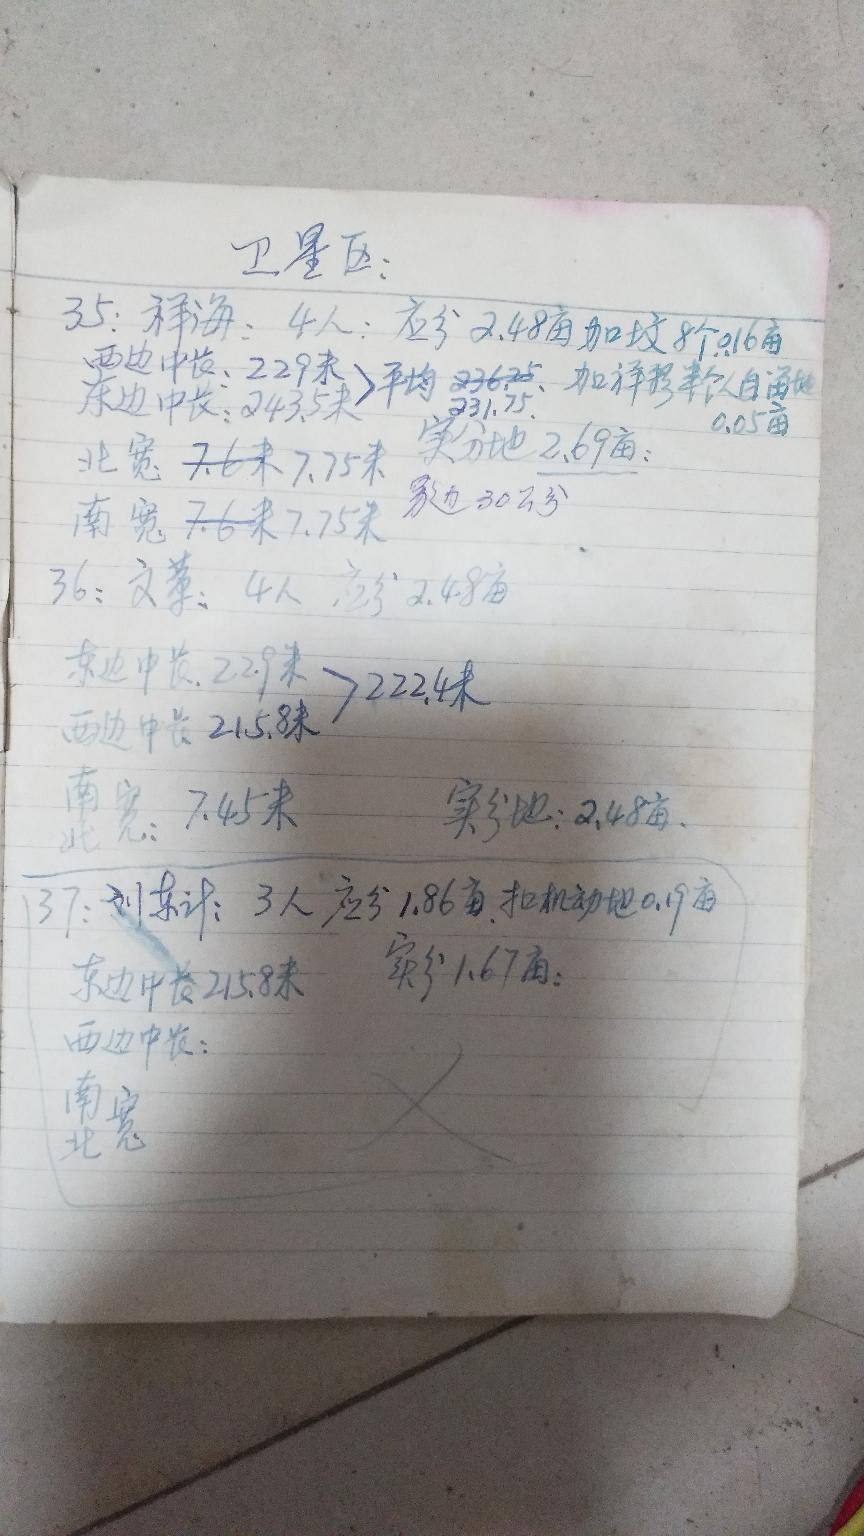 卫星区:
35: 祥海: 4人: 应分2.48亩加坟8个0.16亩
西边中长: 229米
东边中长: 243.5米 >平均 236.25. 加祥 半个人自留地
231.75. 0.05亩
北宽 7.6米 7.75米 实分地2.69亩:
南宽 7.6米 7.75米 30公分
36: 文革: 4人 应分2.48亩
东边中长 229米
西边中长 215.8米 >222.4米
南
北 宽: 7.45米 实分地: 2.48亩.
37: 刘东计: 3人 应分1.86亩. 扣机动地0.19亩
东边中长215.8米 实分1.67亩:
西边中长:
南
北 宽